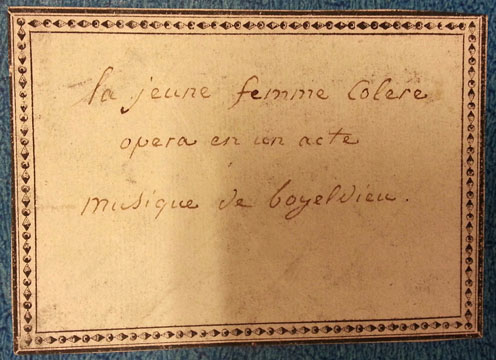 la jeune femme Colere
opera en un acte
musique de boyeldieu.